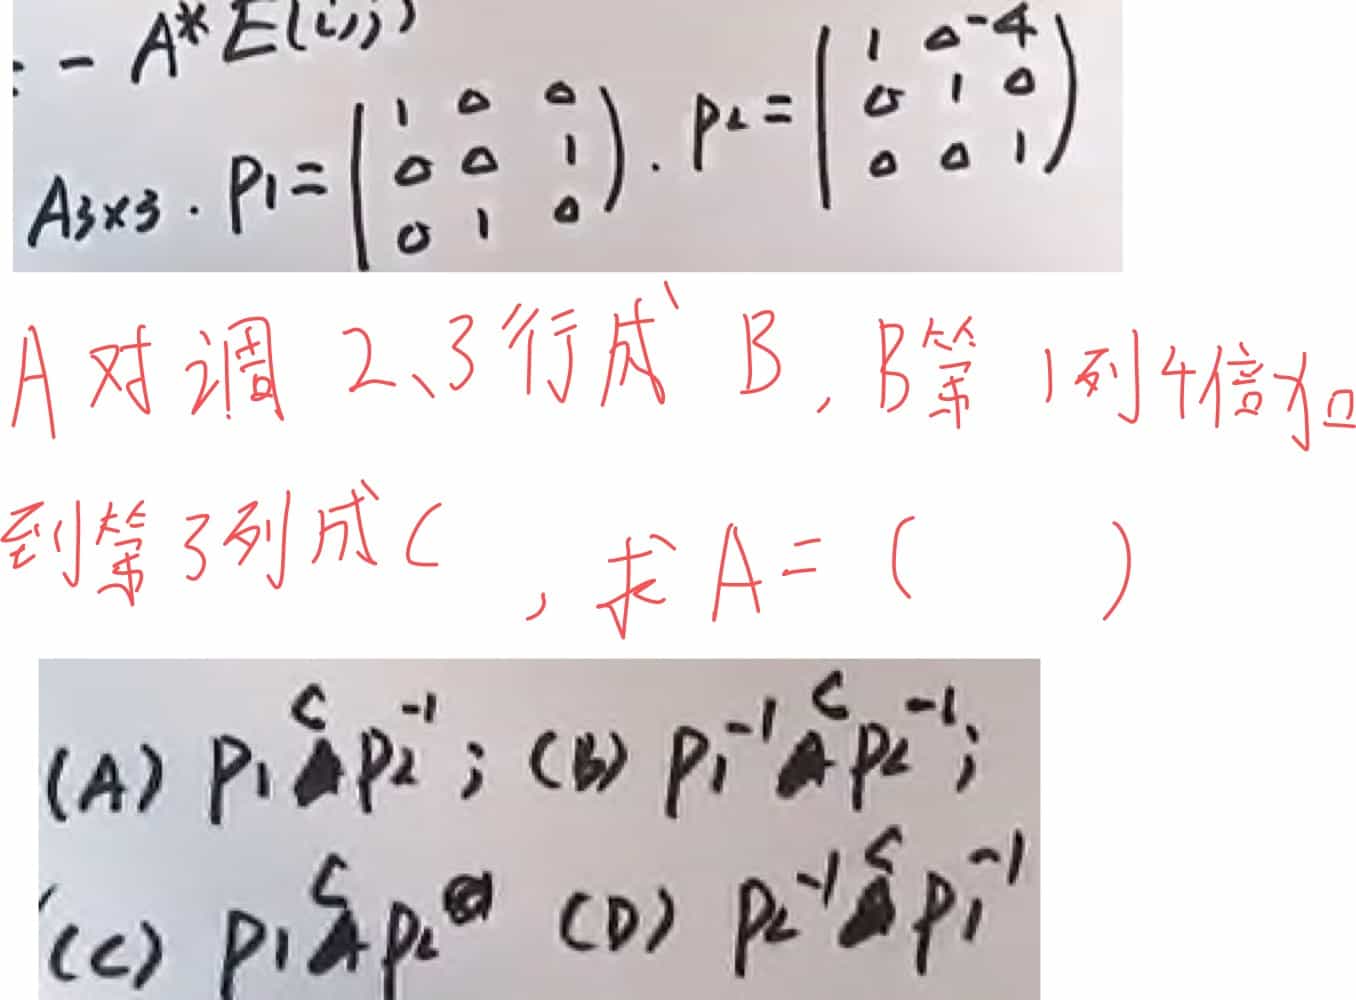 = - A*E(i,j)
A3×3 . P1 = (1 0 0 0 0 1 0 1 0) . P2 = (1 0 -4 0 1 0 0 0 1)
A对调2、3行成B,B第1列4倍加
到第3列成C,求A=( )
(A) P1CP2^-1; (B) P1^-1CP2^-1;
(C) P1CP2 (D) P2^-1CP1^-1